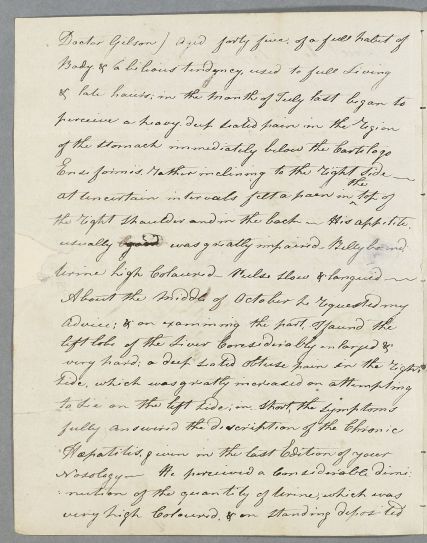 Doctor Gilson) aged forty five, of a full habit of
Body & a bilious tendency, used to full Living
& late hours; in the month of July last began to
perceive a heavy deep seated pain in the Region
of the stomach immediately below the Cartilago
Ensiformis, Rather inclining to the Right side —
at uncertain intervals felt a pain in the top of
the Right shoulder and in the back — His appetite,
usually good was greatly impaired. Belly bound
Urine high Coloured Pulse slow & languid —
About the middle of October he Requested my
advice; & on examining the part, I found the
left lobe of the Liver Considerably enlarged &
very hard; a deep seated obtuse pain in the Right
side, which was greatly increased on attempting
to Lie on the left side; in short, the symptoms
fully answered the description of the Chronic
Hæpatitis, given in the last Edition of your
Nosology — He perceived a Considerable dimi:
:nution of the quantity of Urine, which was
very high Coloured, & on standing deposited